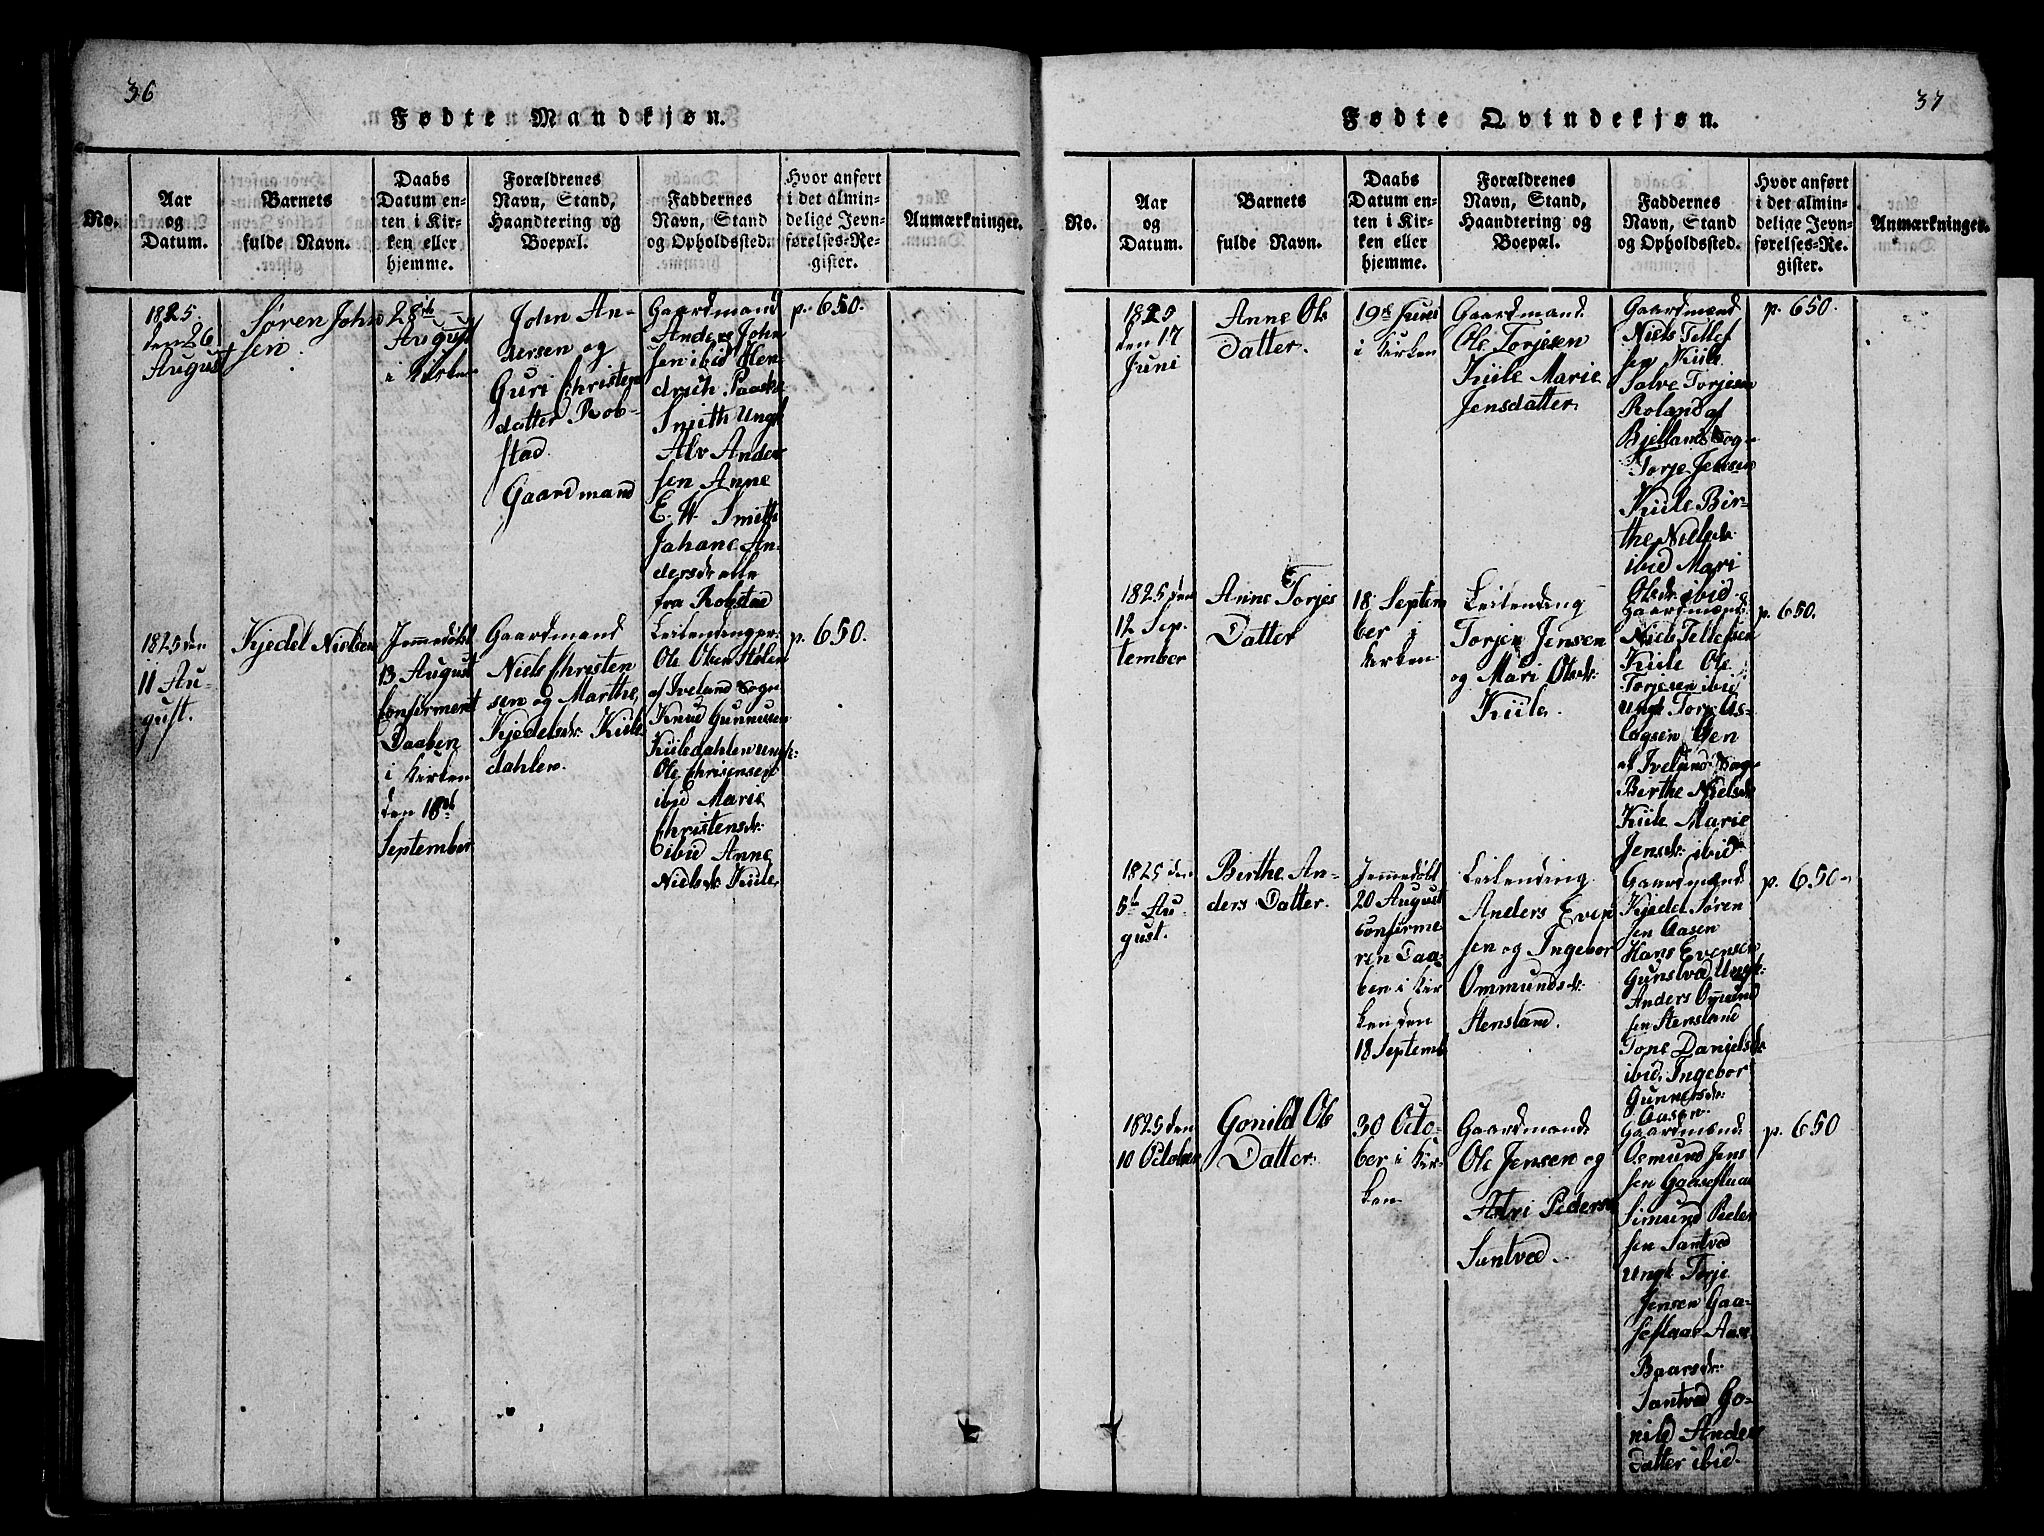 36
Fødte Mandkjøn.
No.
Aar
og
Datum.
Barnets
fulde Navn.
Daabs
Datum en-
ten i Kir-
ken eller
hjemme.
Forældrenes
Navn, Stand,
Haandtering og
Boepæl.
Faddernes
Navn, Stand
og Opholdssted.
Hvor anført
i det almin-
delige Jevn-
førelses-Re-
gister.
Anmærkninger.
1825.
den 26
August
Søren John
sen.
28de
August
i Kirken
John An-
dersen og
Guri Christens
datter Rob-
stad.
Gaardmand
Gaardmand
Anders John
sen ibid Hen-
drich Paaske
Smith Ungk
Alv Ander
sen Anne
E. W. Smith
Johane An-
dersdr alle
fra Robstad
p. 650.
1825 den
11 Au-
gust.
Kjedel Nielsen
Jemmedøbt
13 August
Confirment
Daaben
i Kirken
den 18de
September
Gaardmand
Niels Christen
sen og Marthe
Kjedelsdr. Kiile
dahlen.
Leilendinger:
Ole Olsen Stølen
af Iveland Sogn
Knud Gunnusen
Kiiledahlen Ungk:
Ole Chrisensen
ibid Marie
Christensdr:
ibid Anne
Nielsdr. Kiile
p. 650.
37
Fødte Qvindekjøn.
No.
Aar
og
Datum.
Barnets
fulde Navn.
Daabs
Datum en-
ten i Kir-
ken eller
hjemme.
Forældrenes
Navn, Stand,
Haandtering og
Boepæl.
Faddernes
Navn, Stand
og Opholdssted.
Hvor anført
i det almin-
delige Jevn-
førelses-Re-
gister.
Anmærkninger.
1825
den 17
Juni
Anne Ols
Datter.
19de Juni
i Kirken
Gaardmand
Ole Torjesen
Kiile Marie
Jensdatter
Gaardmænd
Niels Tellef
sen Kiile
Salve Torjesen
Roland af
Bjelland Sogn
Torje Jensen
Kiile Bir-
the Nielsdr.
ibid Mari
Olsdr. ibid
p. 650.
1825 den
12 Sep-
tember
Anne Torjes
Datter
18. Septem
ber i
Kirken
Leilending
Torjer Jensen
og Mari Olsdr.
Kiile.
Gaardmænd:
Niels Tellefsen
Kiile Ole
Torjesen ibid
Ungk Torje As-
lagsen
af Iveland Sogn
Birthe Nielsdr
Kiile Marie
Jensdr. ibid
p. 650.
1825 den
5te Au-
gust.
Birthe An-
ders Datter.
Jemmedøbt
20 August
Confirme
ren Daa-
ben i Kir
ken den
18 Septemb
Leilending
Anders Even
sen og Ingebor
Ommundsdr.
Stensland.
Gaardmænd
Kjedel Søren
sen Aasen
Hans Evensen
Gunstvæd Ungk:
Anders Omund
sen Stensland
Tone Danielsdr
ibid, Ingebor
Gunnersdr:
Aasen.
p. 650.
1825 den
10 October
Gonild Ols
Datter.
30 Octo-
ber i Kir-
ken
Gaardmand
Ole Jensen og
Astri Peders
Santved.
Gaardmænd
Osmund Jens
sen Gaaseflaae
Simund Peder
sen Santved
Ungk Torje
Jensen Gaa-
seflaae Aase
Baarsdr.
Santved Go-
nild Anders
Datter ibid.
p. 650